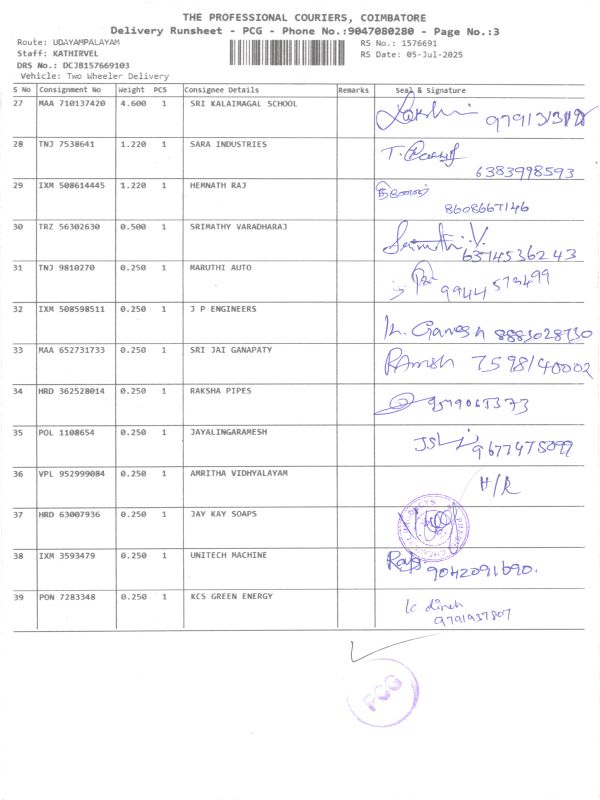 THE PROFESSIONAL COURIERS, COIMBATORE
Delivery Runsheet - PCG - Phone No.:9047080280 - Page No.:3
Route: UDAYAMPALAYAM RS No.: 1576691
Staff: KATHIRVEL RS Date: 05-Jul-2025
DRS No.: DCJB157669103
Vehicle: Two Wheeler Delivery
S No Consignment No Weight PCS Consignee Details Remarks Seal & Signature
27 MAA 710137420 4.600 1 SRI KALAIMAGAL SCHOOL
28 TNJ 7538641 1.220 1 SARA INDUSTRIES
6383998593
29 IXM 508614445 1.220 1 HEMNATH RAJ
8608667146
30 TRZ 56302630 0.500 1 SRIMATHY VARADHARAJ
6374536243
31 TNJ 9810270 0.250 1 MARUTHI AUTO
9944573499
32 IXM 508598511 0.250 1 J P ENGINEERS
Ganesh 8883028730
33 MAA 652731733 0.250 1 SRI JAI GANAPATY
RAmesh 7598140002
34 HRD 362528014 0.250 1 RAKSHA PIPES
35 POL 1108654 0.250 1 JAYALINGARAMESH
36 VPL 952999084 0.250 1 AMRITHA VIDHYALAYAM
H/R
37 HRD 63007936 0.250 1 JAY KAY SOAPS
38 IXM 3593479 0.250 1 UNITECH MACHINE
9042091690.
39 PON 7283348 0.250 1 KCS GREEN ENERGY
K dinesh
9791937807
PCG